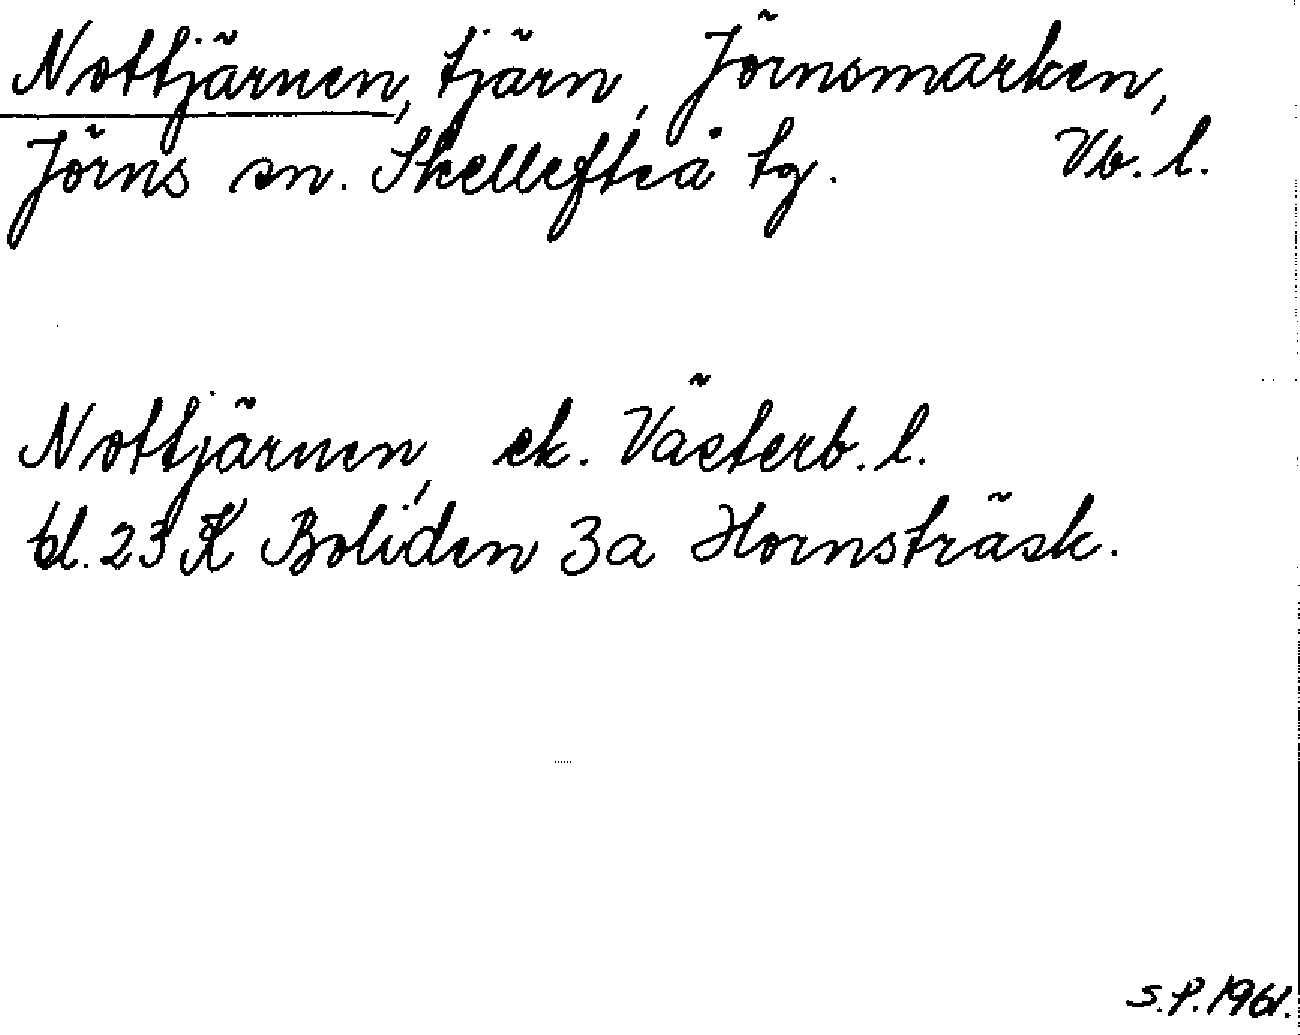 Nottjärnen, tjärn, Jörnsmarken,
Jörns sn. Skellefteå tg. Vb. l.
Nottjärnen, ek. Västerb. l.
bl. 23 K Boliden 3a Hornsträsk.
S.P. 1961.